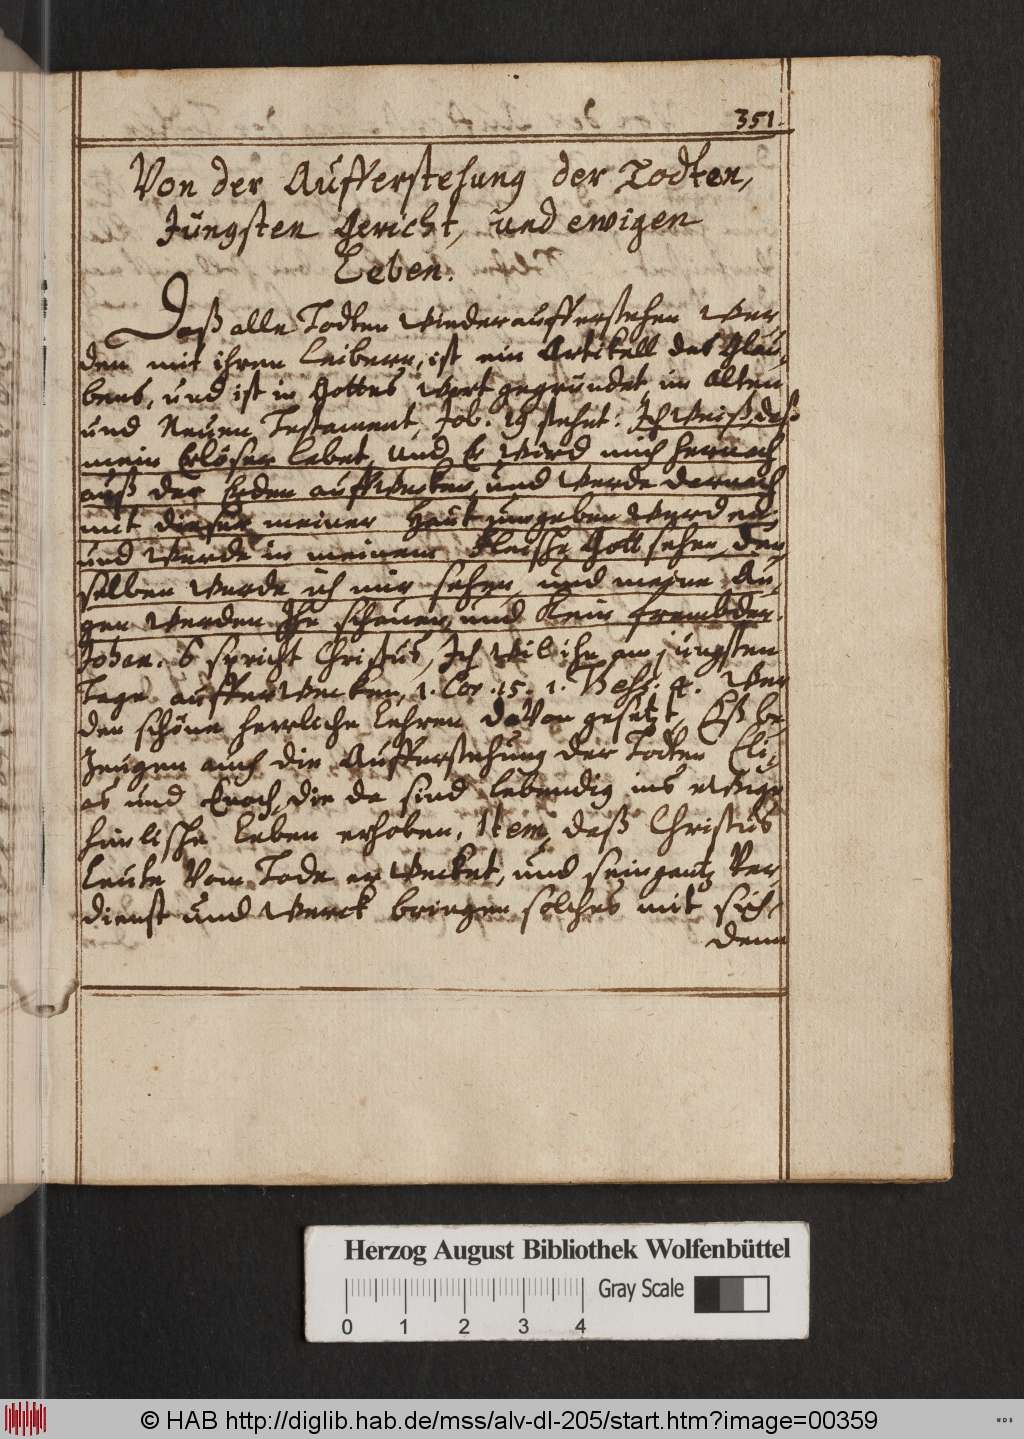 351.
Von der Aufferstehung der Todten,
Jüngsten Gericht, und ewigen
Leben.
Daß alle Todten wieder aufferstehen wer
den mit ihren leibern, ist ein Artikell des Glau,
bens, und ist in Gottes wort gegründet im Alten
und Neuen Testament, Job. 19 stehet: Ich weiß, daß
mein Erlöser lebet, und Er wird mich hernach
auß der Erden auffwecken, und werde darnach
mit dieser meiner Haut umgeben werden,
und werde in meinem Fleische Gott sehen, den,
selben werde ich mir sehen, und meine Au,
gen werden Ihn schauen, und kein frembder.
Johan. 6 spricht Christus, Ich wil ihn am jüngsten
Tage aufferwecken, 1. Cor. 15. 1. Thess: 4. Wer
den schöne herrliche Lehren davon gesetzt, Eß be
zeugen auch die Aufferstehung der Todten Eli,
as und Enoch, die da sind lebendig ins ewige
himlische leben erhoben, Item, daß Christus
leute vom Tode erwecket, und sein gantz ver
dienst und werck bringen solches mit sich,
denn
Herzog August Bibliothek Wolfenbüttel
Gray Scale
0 1 2 3 4
© HAB http://diglib.hab.de/mss/alv-dl-205/start.htm?image=00359